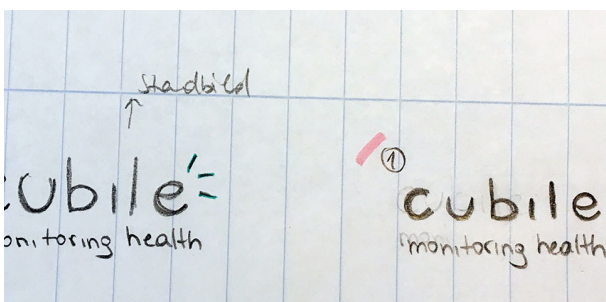 stadbild
cubile
onitoring health
1
cubile
monitoring health